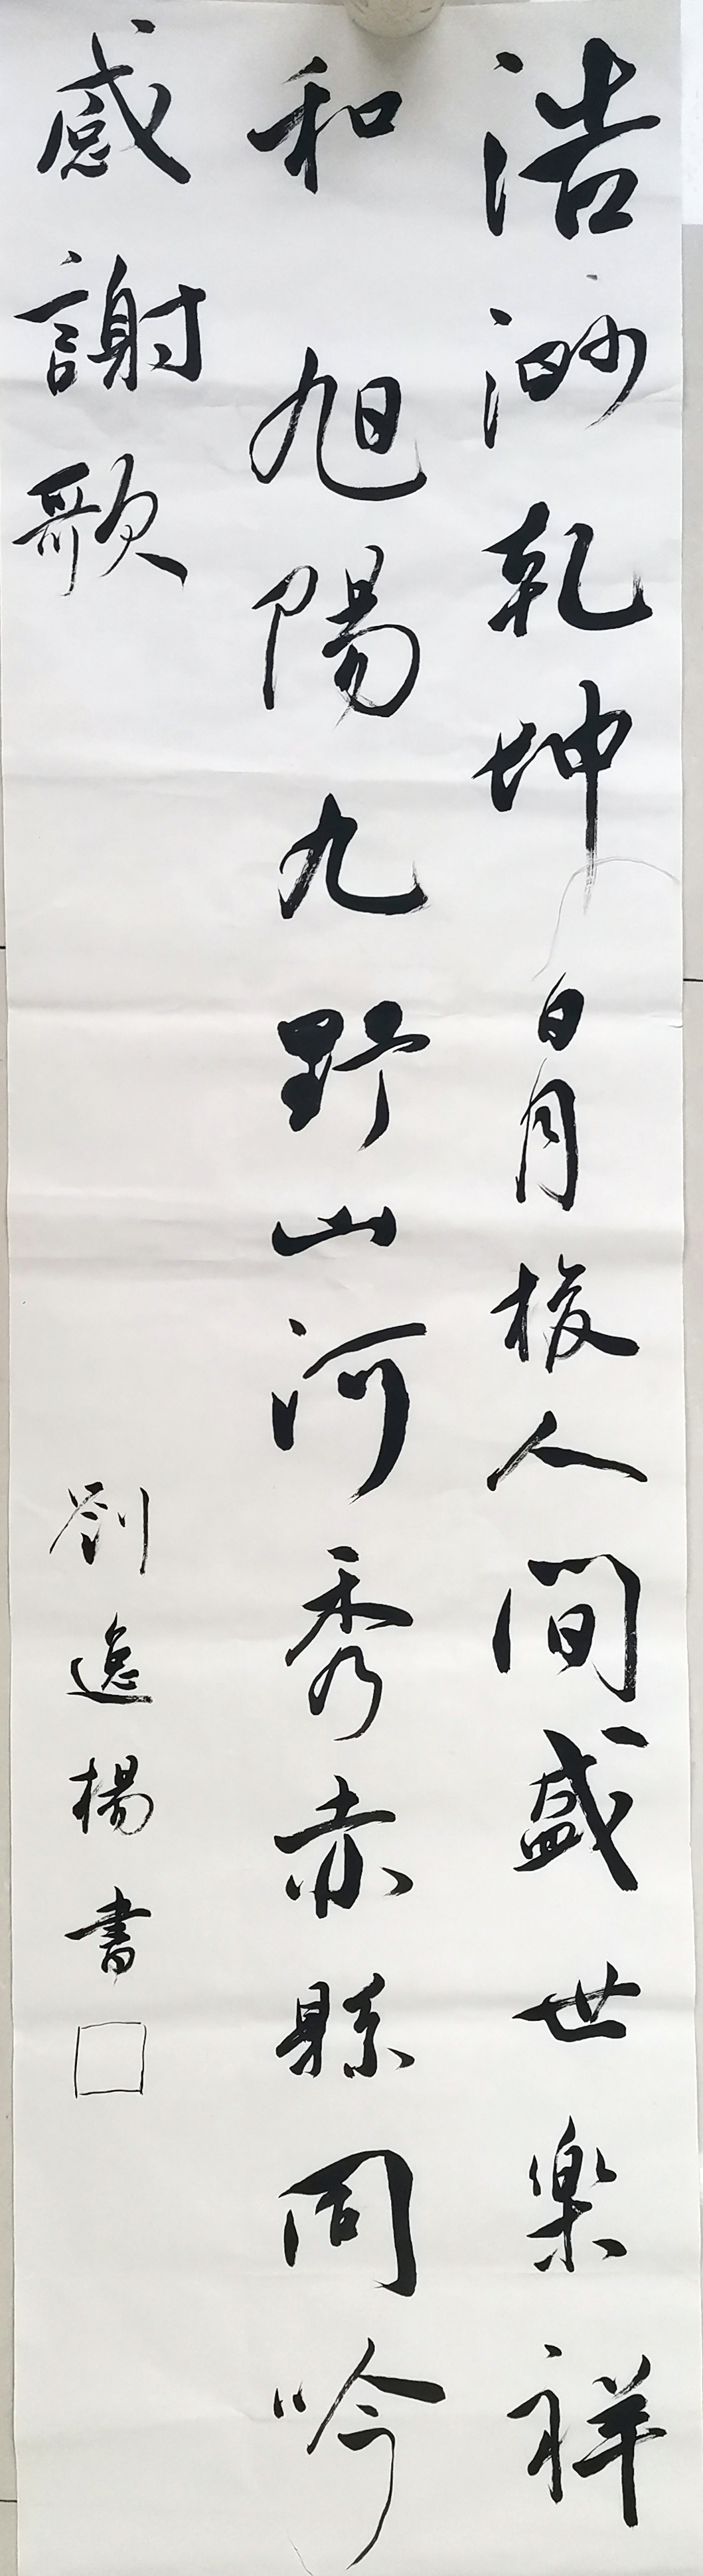 浩渺乾坤日月梭人間盛世樂祥
和旭陽九野山河秀赤縣同吟
感謝歌
劉逸楊書